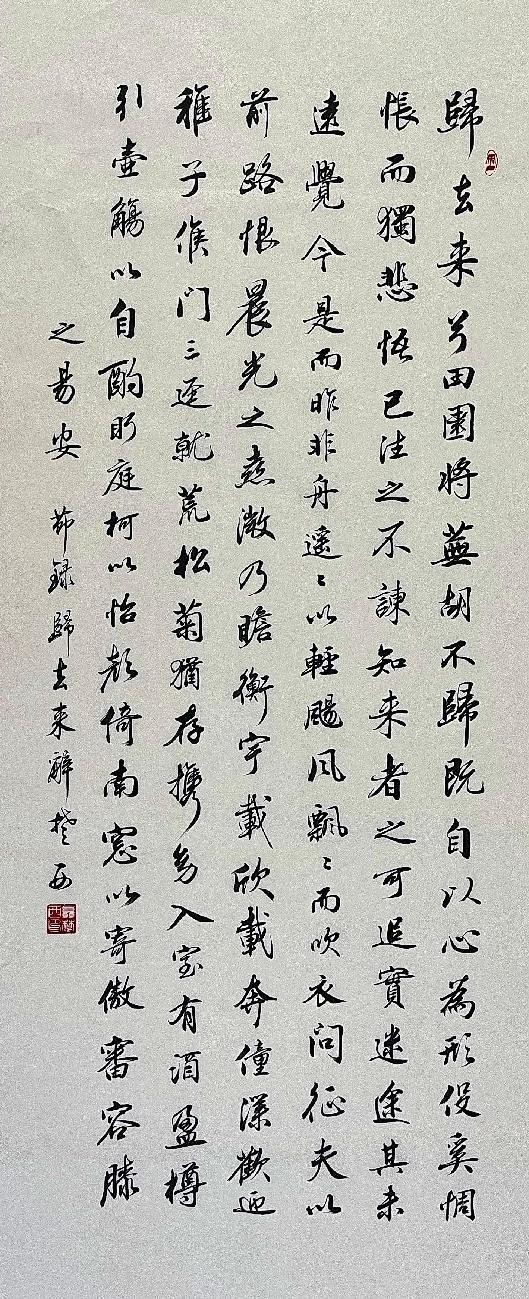 歸去来兮田園將蕪胡不歸既自以心為形役奚惆
悵而獨悲悟已往之不諫知来者之可追實迷途其未
遠覺今是而昨非舟遥〻以輕颺风飄〻而吹衣问征夫以
前路恨晨光之熹微乃瞻衡宇載欣載奔僮歡迎
稚子候门三迳就荒松菊猶存携幼入室有酒盈樽
引壺觴以自酌眄庭柯以怡颜倚南窓以寄傲審容膝
之易安 節録歸去来辭 楚西